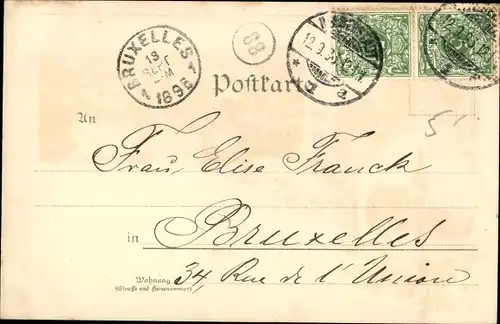 BRUXELLES
1896
88
Postkarte
An
Frau Elise Franck
in Bruxelles
Wohnung 34, Rue de l'Union
(Strasse und Hausnummer)